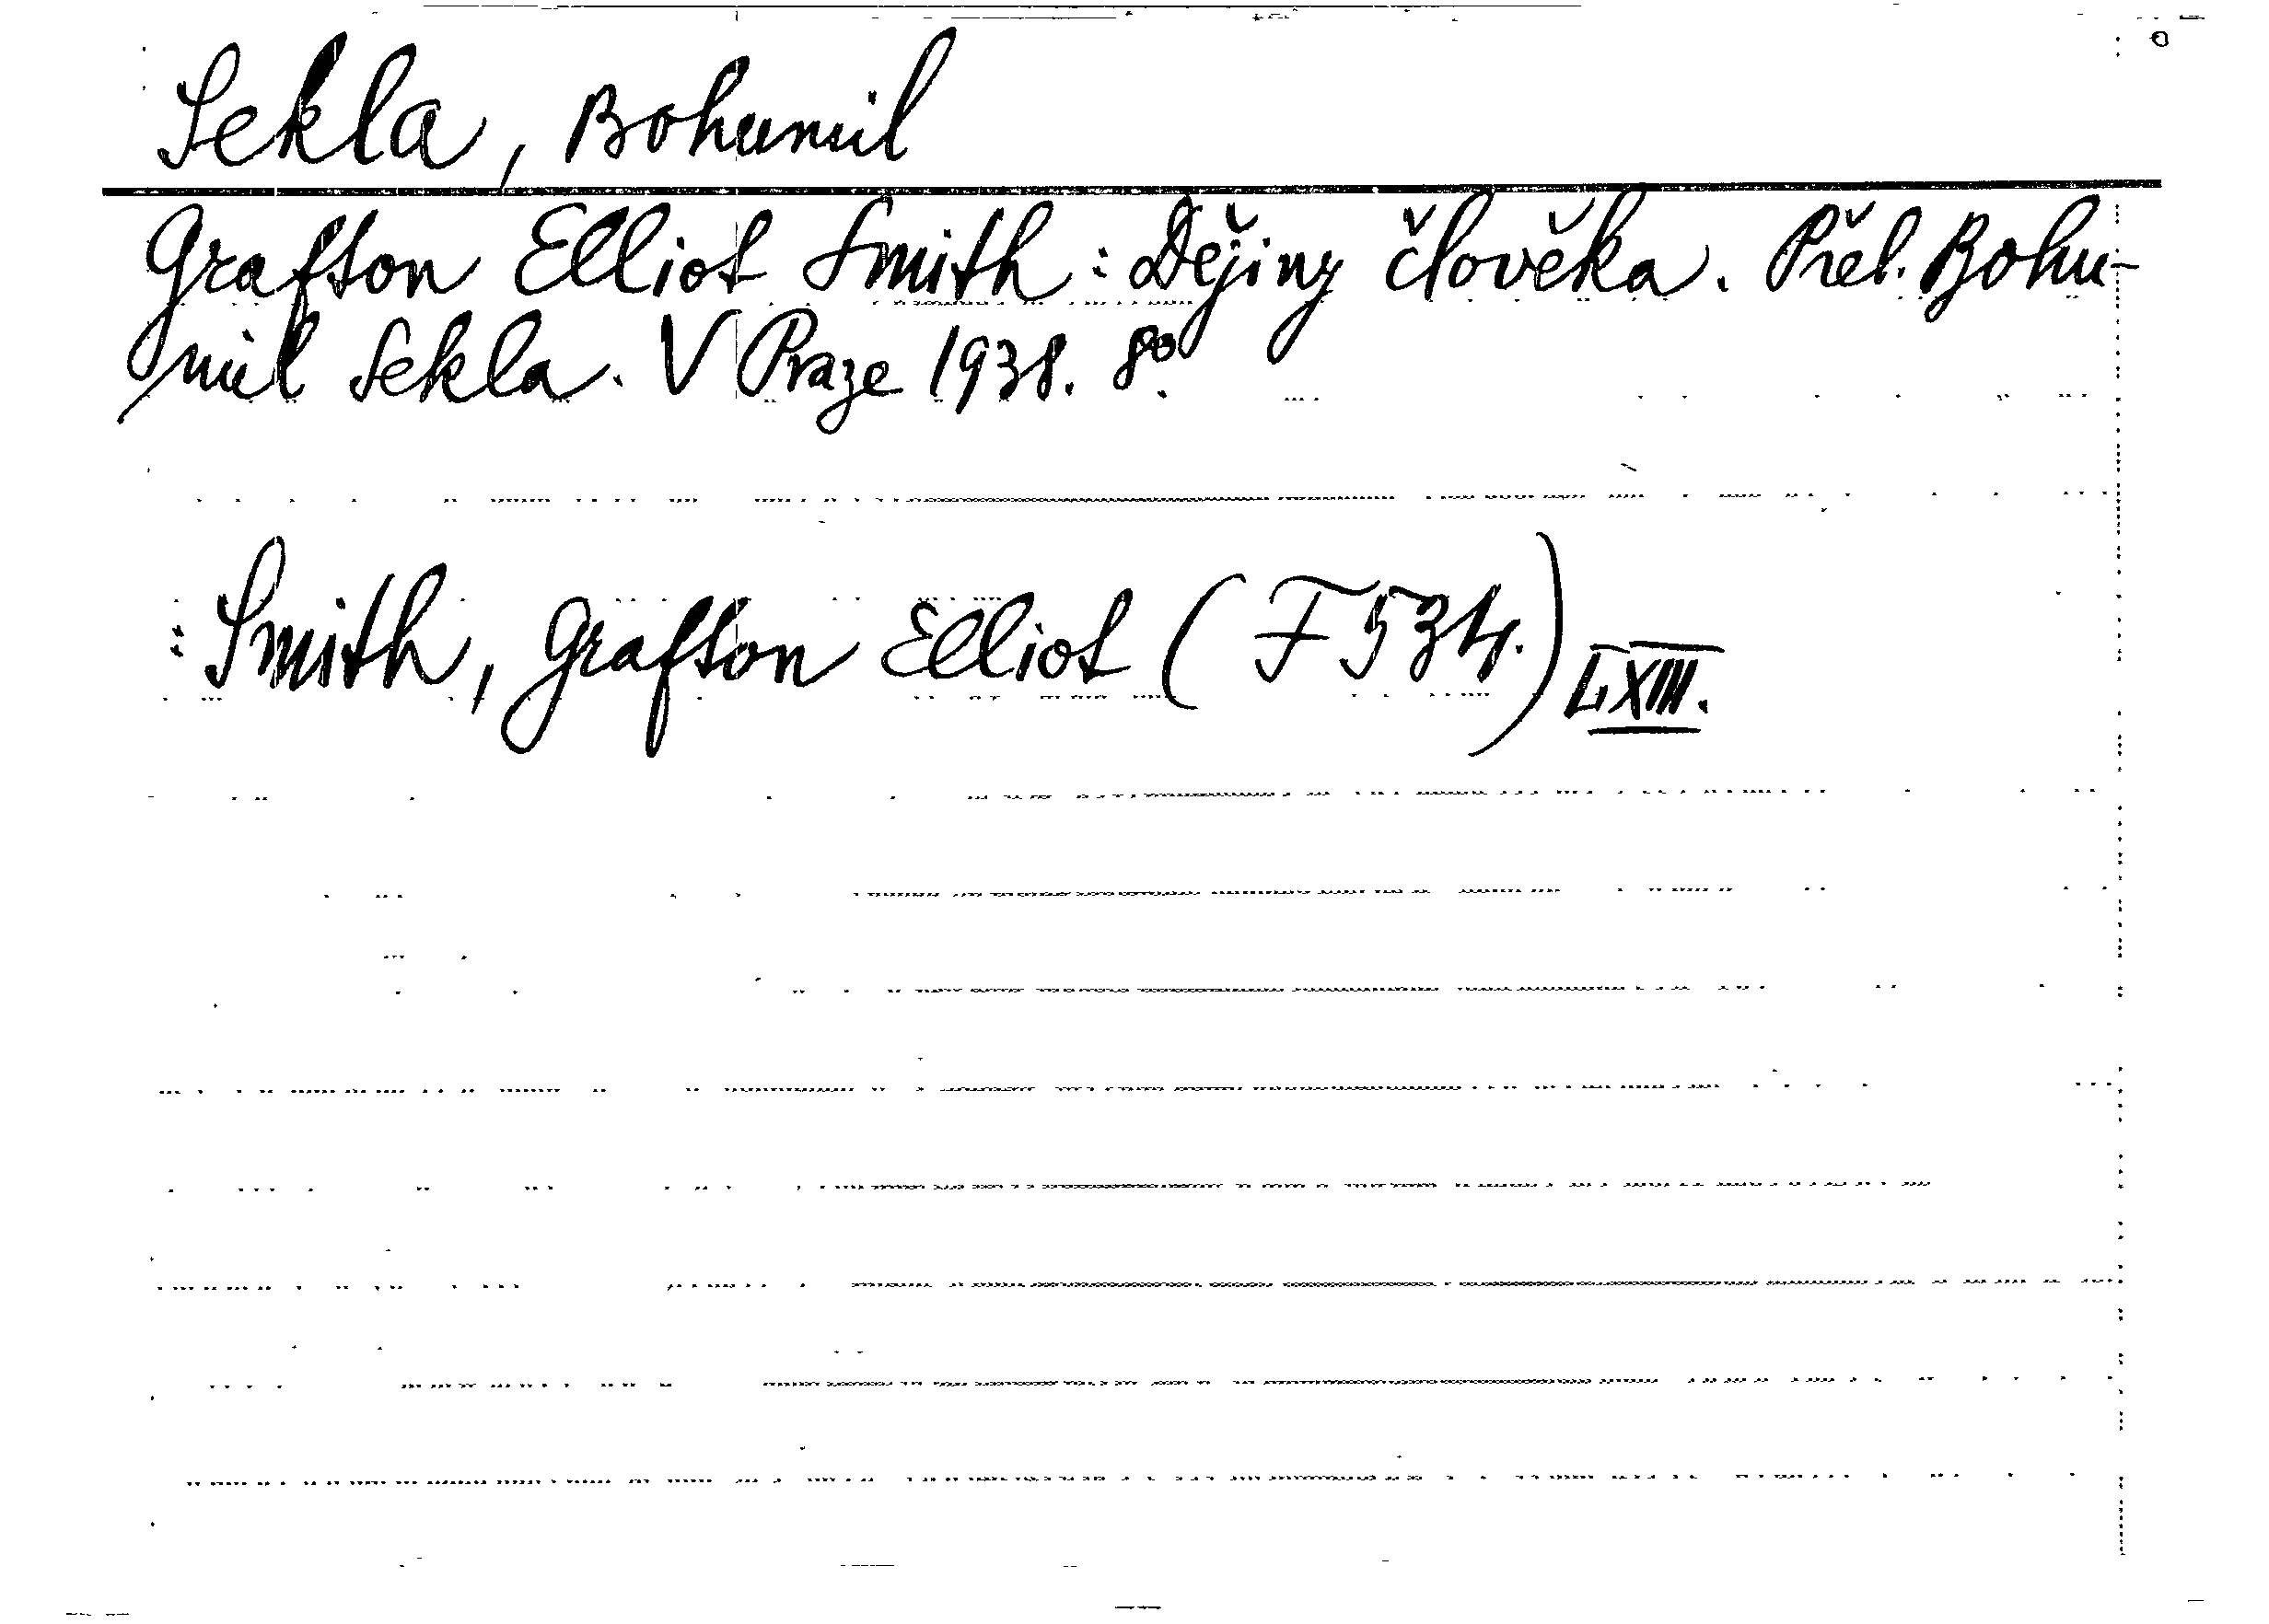 Sekla, Bohumil
Grafton Elliot Smith: Dějiny člověka. Přel. Bohu-
mil Sekla. V Praze 1938. 8º.
: Smith, Grafton Elliot (F 534.) LXIII.